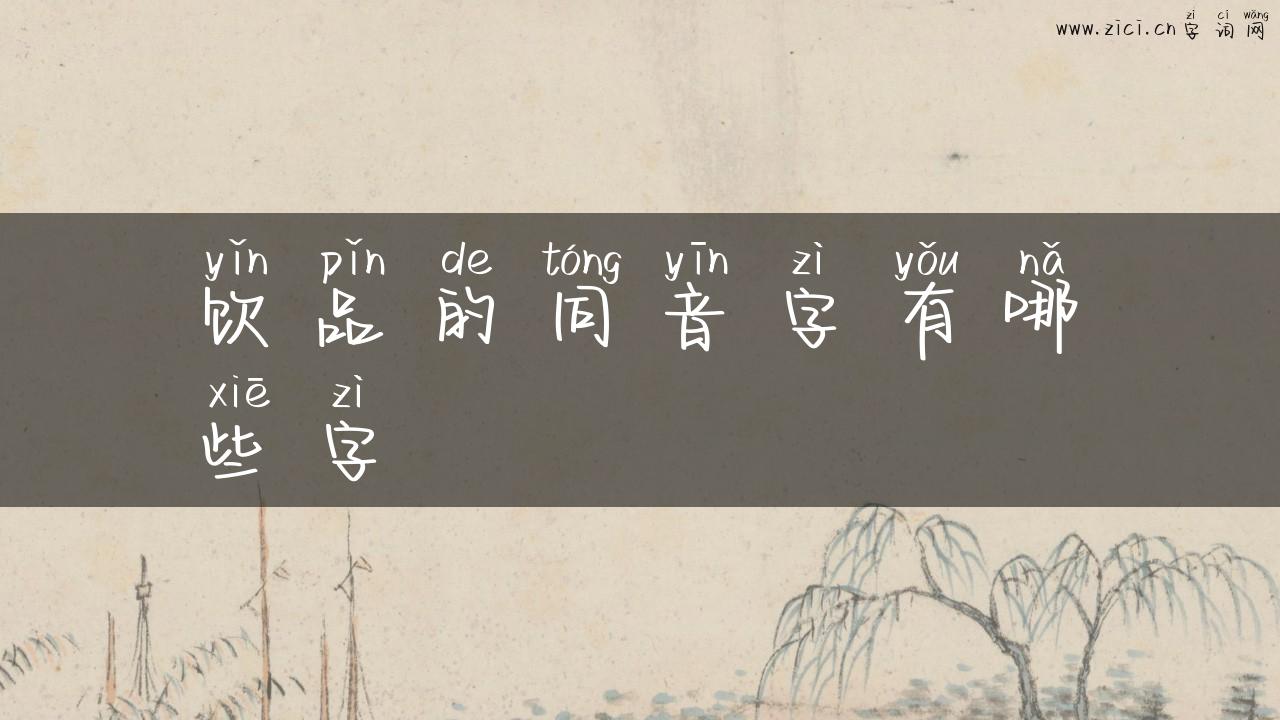 zì cí wǎng
www.zici.cn 字词网
yǐn pǐn de tóng yīn zì yǒu nǎ
饮品的同音字有哪
xiē zì
些字